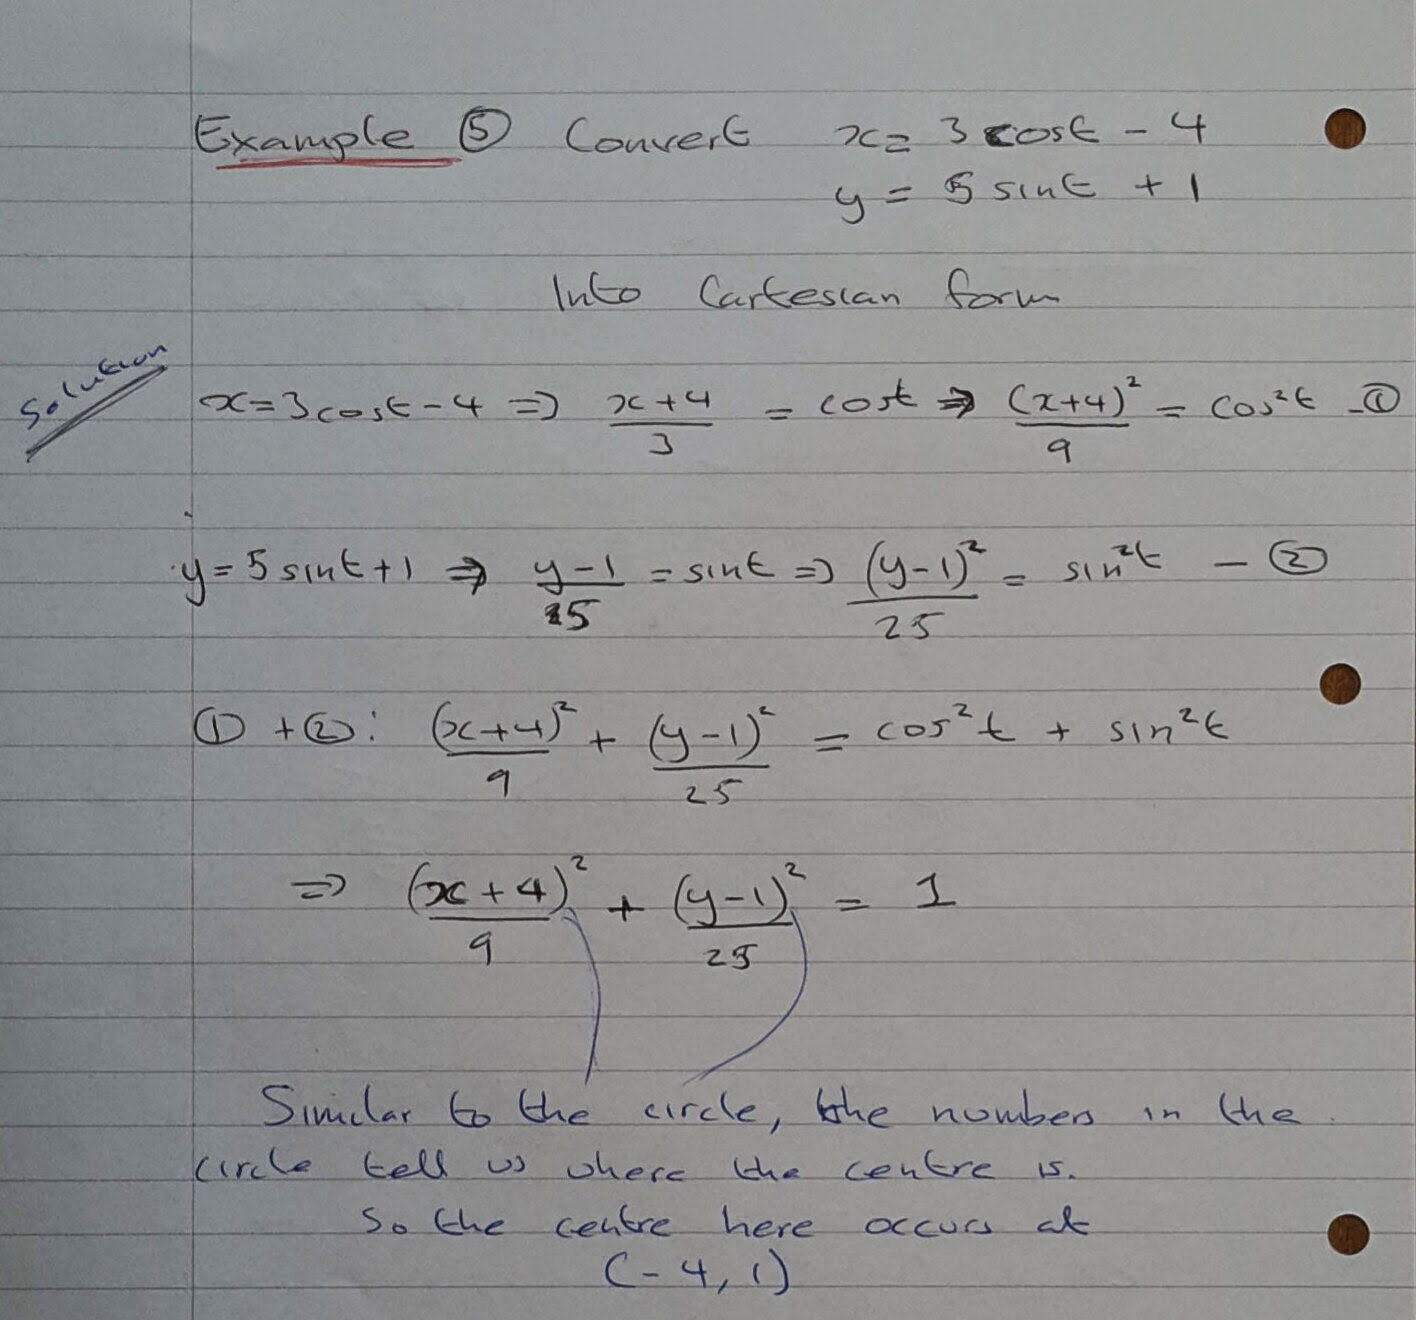 Example ⑤ Convert x = 3 cost - 4
y = 5 sint + 1
Into Cartesian form
Solution
x = 3cost - 4 ⇒ (x+4)/3 = cost ⇒ (x+4)²/9 = cos²t - ①
y = 5 sint + 1 ⇒ (y-1)/5 = sint ⇒ (y-1)²/25 = sin²t - ②
① + ②: (x+4)²/9 + (y-1)²/25 = cos²t + sin²t
⇒ (x+4)²/9 + (y-1)²/25 = 1
Similar to the circle, the numbers in the
circle tell us where the centre is.
So the centre here occurs at
(-4, 1)